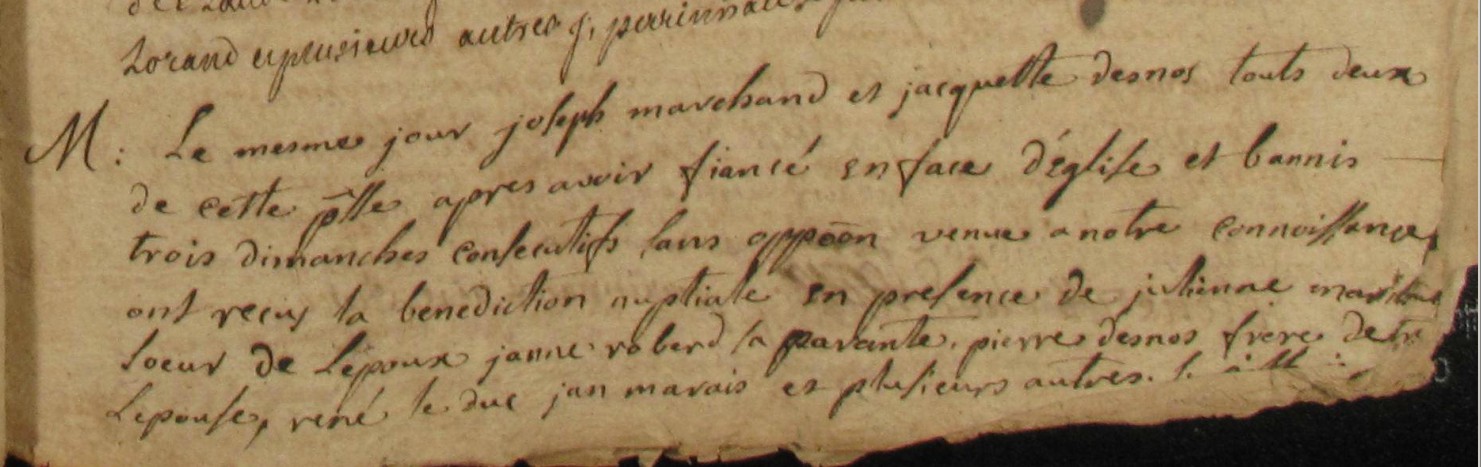 Lorand et plusieurs autres
M: Le mesme jour joseph marchand et jacquette desnos touts deux
de cette p̄sse apres avoir fiancé en face d'église et bannis
trois dimanches consecutifs sans oppōōn venue a notre connoissance,
ont reçus la benediction nuptiale en presence de julienne marchand
soeur de Lepoux janne roberd sa parante, pierre desnos frere de
Lepouse, rené le duc jan marais et plusieurs autres.